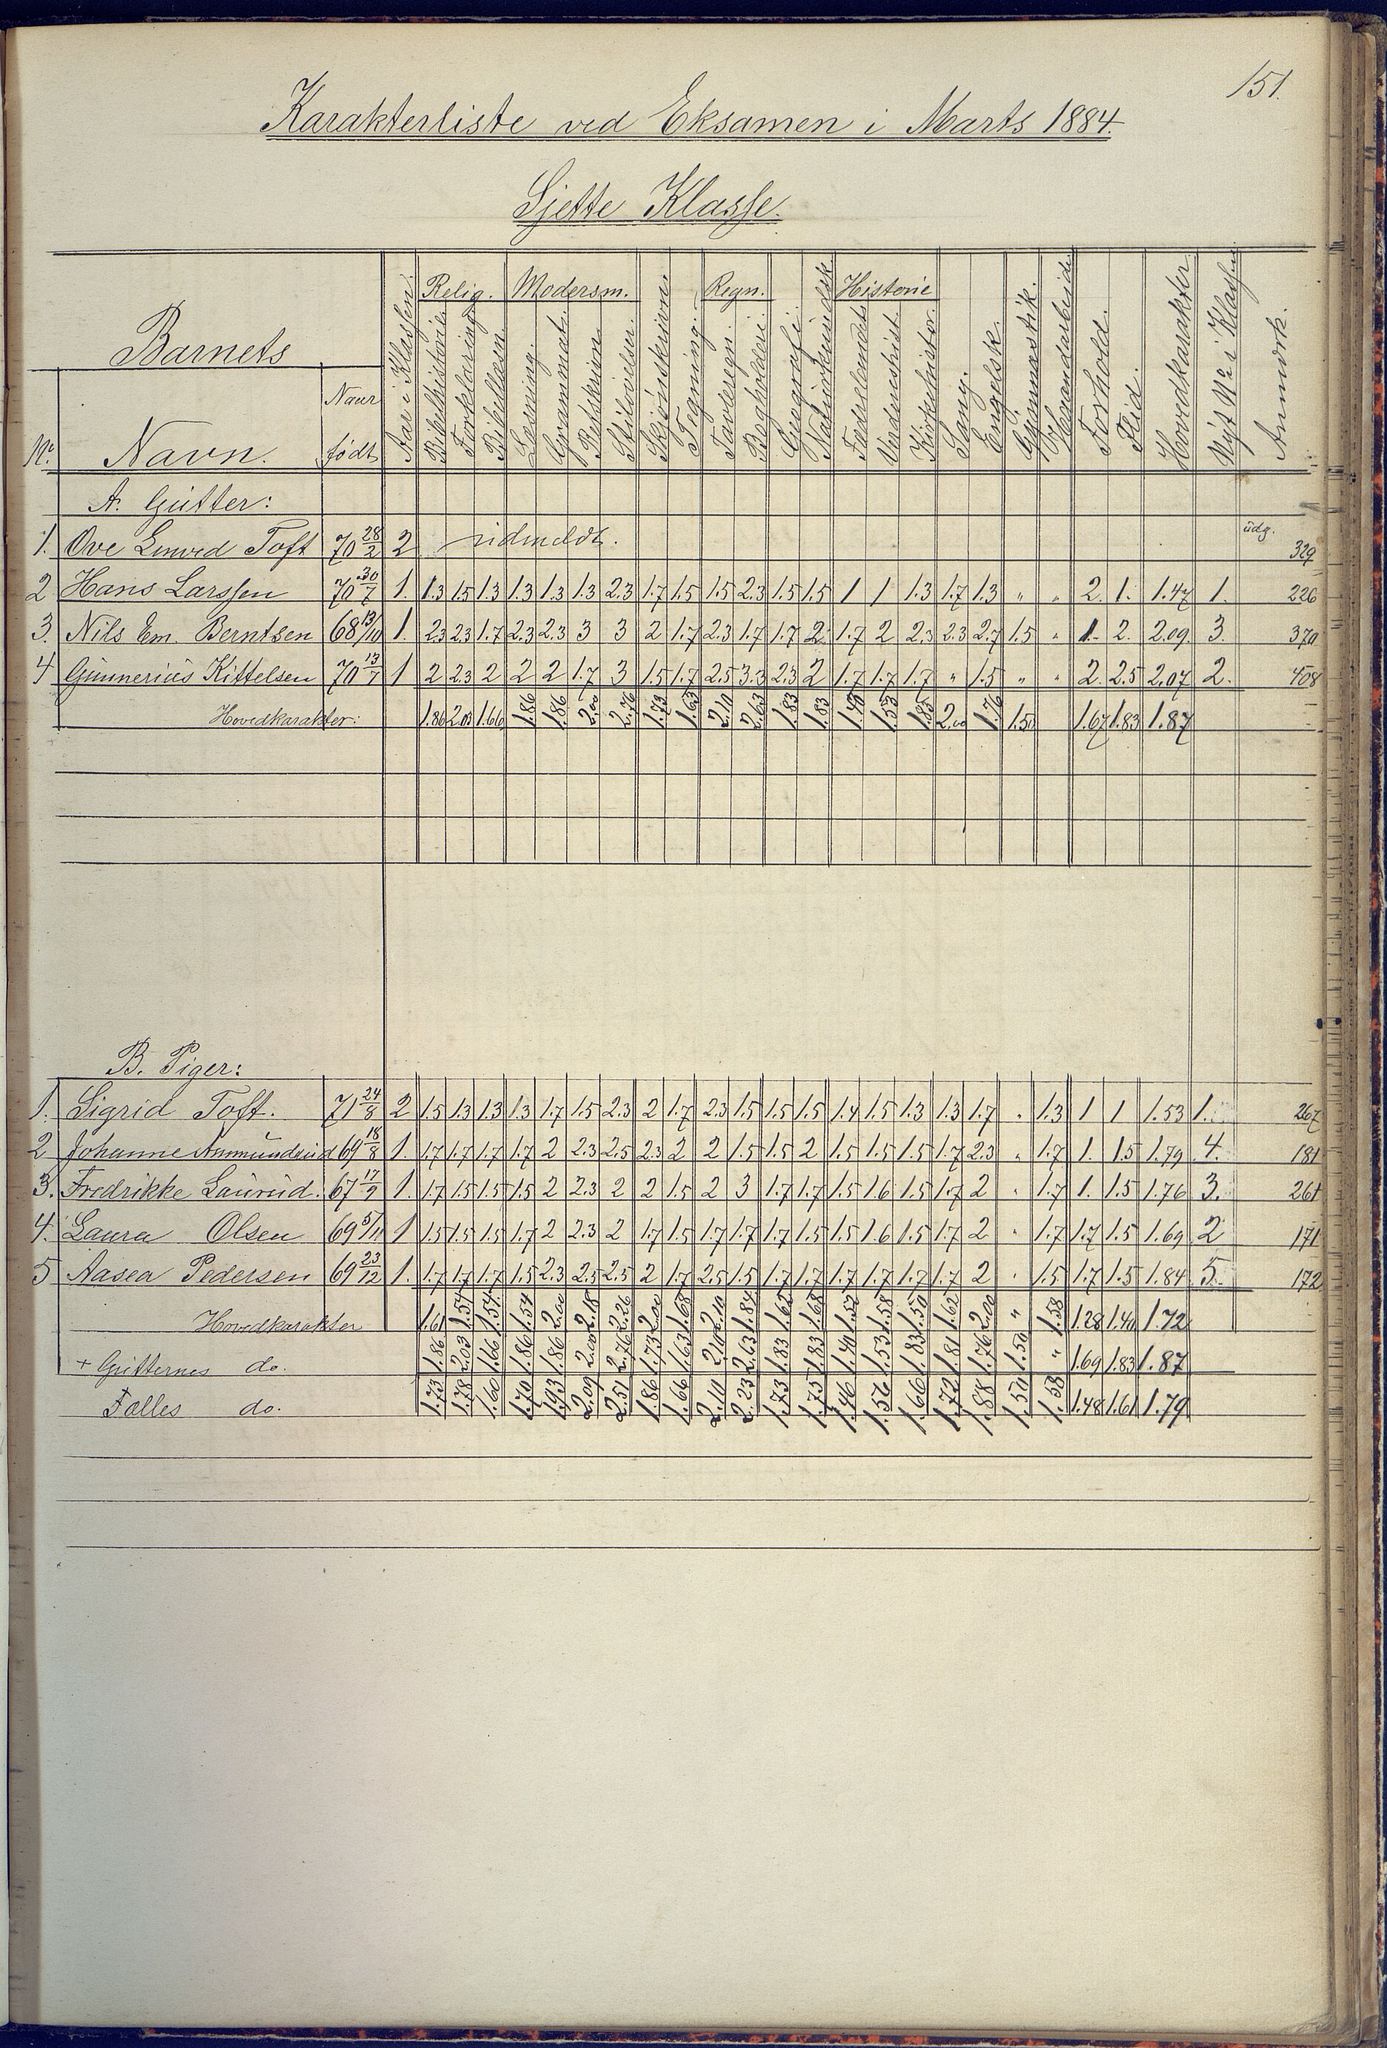 151.
Karakterliste ved Eksamen i Marts 1884.
Sjette Klasse.
Barnets
Nr. Navn. Naar født Aar i Klassen. Relig. Bibelhistorie. Forklaring. Bibellæsn. Modersm. Læsning. Grammat. Retskrivn. Stiløvelser. Skjønskrivn. Tegning. Regn. Tavleregn. Bogholderi. Geografi. Naturkundsk. Historie Fædrelandets Verdenshist. Kirkehistor. Sang. Engelsk. Gymnastik. Haandarbeide Forhold. Flid. Hovedkarakter. Nyt No i Klassen Anmærk.
A. Gutter:
1. Ove Toft 70 28/2 2 udmeldt. udg. 329
2 Hans Larssen 70 30/7 1. 1.3 1.5 1.3 1.3 1.3 1.3 2.3 1.7 1.5 1.5 2.3 1.5 1.5 1 1 1.3 1.7 1.3 " " 2. 1. 1.47 1. 226
3. Nils Em. Berntsen 68 13/10 1. 2.3 2.3 1.7 2.3 2.3 3 3 2 1.7 2.3 1.7 1.7 2. 1.7 2 2.3 2.3 2.7 1.5 " 1. 2. 2.09. 3. 370
4 Gunnerius Kittelsen 70 13/7 1 2 2.3 2 2 2 1.7 3 1.5 1.7 2.5 3.3 2.3 2 1.7 1.7 1.7 " 1.5 " " 2. 2.5 2.07 2. 408
Hovedkarakter: 1.86 2.03 1.66 1.86 1.86 2.00 2.76 1.73 1.63 2.10 2.63 1.83 1.83 1.40 1.53 1.85 2.00 1.76 1.50 1.67 1.83 1.87
B. Piger:
1. Sigrid Toft. 71 24/8 2 1.5 1.3 1.3 1.3 1.7 1.5 2.3 2 1.7 2.3 1.5 1.5 1.5 1.4 1.5 1.3 1.3 1.7 " 1.3 1 1 1.53 1. 267
2 Johanne Anmundsrud 69 18/8 1. 1.7 1.7 1.7 1.7 2 2.3 2.5 2.3 2 2 1.5 1.5 2 1.5 1.5 1.5 1.7 2.3 " 1.7 1. 1.5 1.79 4. 181
3. Fredrikke Laurud. 67 17/9 1. 1.7 1.5 1.5 1.5 2 2.3 2 2 1.5 2 3 1.7 1.7 1.5 1.6 1.5 1.7 2 " 1.7 1. 1.5 1.76 3. 261
4. Laura Olsen 69 5/11 1 1.5 1.5 1.5 1.7 2 2.3 2 1.7 1.5 1.7 1.7 1.7 1.5 1.5 1.6 1.5 1.7 2 " 1.7 1.7 1.5 1.69 2 171
5 Aasea Pedersen 69 23/12 1. 1.7 1.7 1.7 1.5 2.3 2.5 2.5 2 1.7 2.5 1.5 1.7 1.7 1.7 1.7 1.7 1.7 2 " 1.5 1.7 1.5 1.84 5. 172
Hovedkarakter 1.61 1.54 1.54 1.54 2.00 2.18 2.26 2.00 1.68 2.10 1.84 1.62 1.68 1.52 1.58 1.50 1.62 2.00 " 1.58 1.28 1.40 1.72
+ Gutternes do. 1.86 2.03 1.66 1.86 1.86 2.00 2.76 1.73 1.63 2.10 2.63 1.83 1.83 1.40 1.53 1.83 1.81 1.76 1.50 " 1.69 1.83 1.87
Fælles do. 1.73 1.78 1.60 1.70 1.93 2.09 2.51 1.86 1.66 2.10 2.23 1.73 1.75 1.46 1.56 1.66 1.72 1.88 1.50 1.58 1.48 1.61 1.79